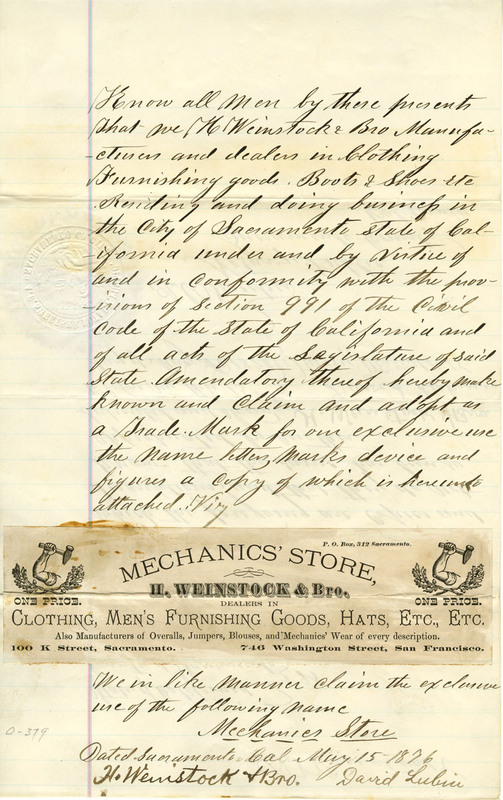 Know all men by these presents
that we H Weinstock & Bro Manufa-
-cturers and dealers in Clothing
Furnishing goods. Boots & Shoes etc
Residing and doing business in
the City of Sacramento State of Cal-
-ifornia under and by virtue of
and in conformity with the prov-
-isions of Section 991 of the Civil
Code of the State of California and
of all acts of the Legislature of said
State. Amendatory thereof hereby make
known and claim and adopt as
a Trade-Mark for our exclusive use
the name letters, marks device and
figures a copy of which is hereunto
attached. Viz
P. O. Box, 312 Sacramento.
MECHANICS' STORE,
H. WEINSTOCK & Bro.
DEALERS IN
ONE PRICE. ONE PRICE.
CLOTHING, MEN'S FURNISHING GOODS, HATS, ETC., ETC.
Also Manufacturers of Overalls, Jumpers, Blouses, and Mechanics' Wear of every description.
100 K Street, Sacramento. 746 Washington Street, San Francisco.
We in like manner claim the exclusive
use of the following name
Mechanics Store
Dated Sacramento Cal May 15 1876
H. Weinstock & Bro. David Lubin
0-379